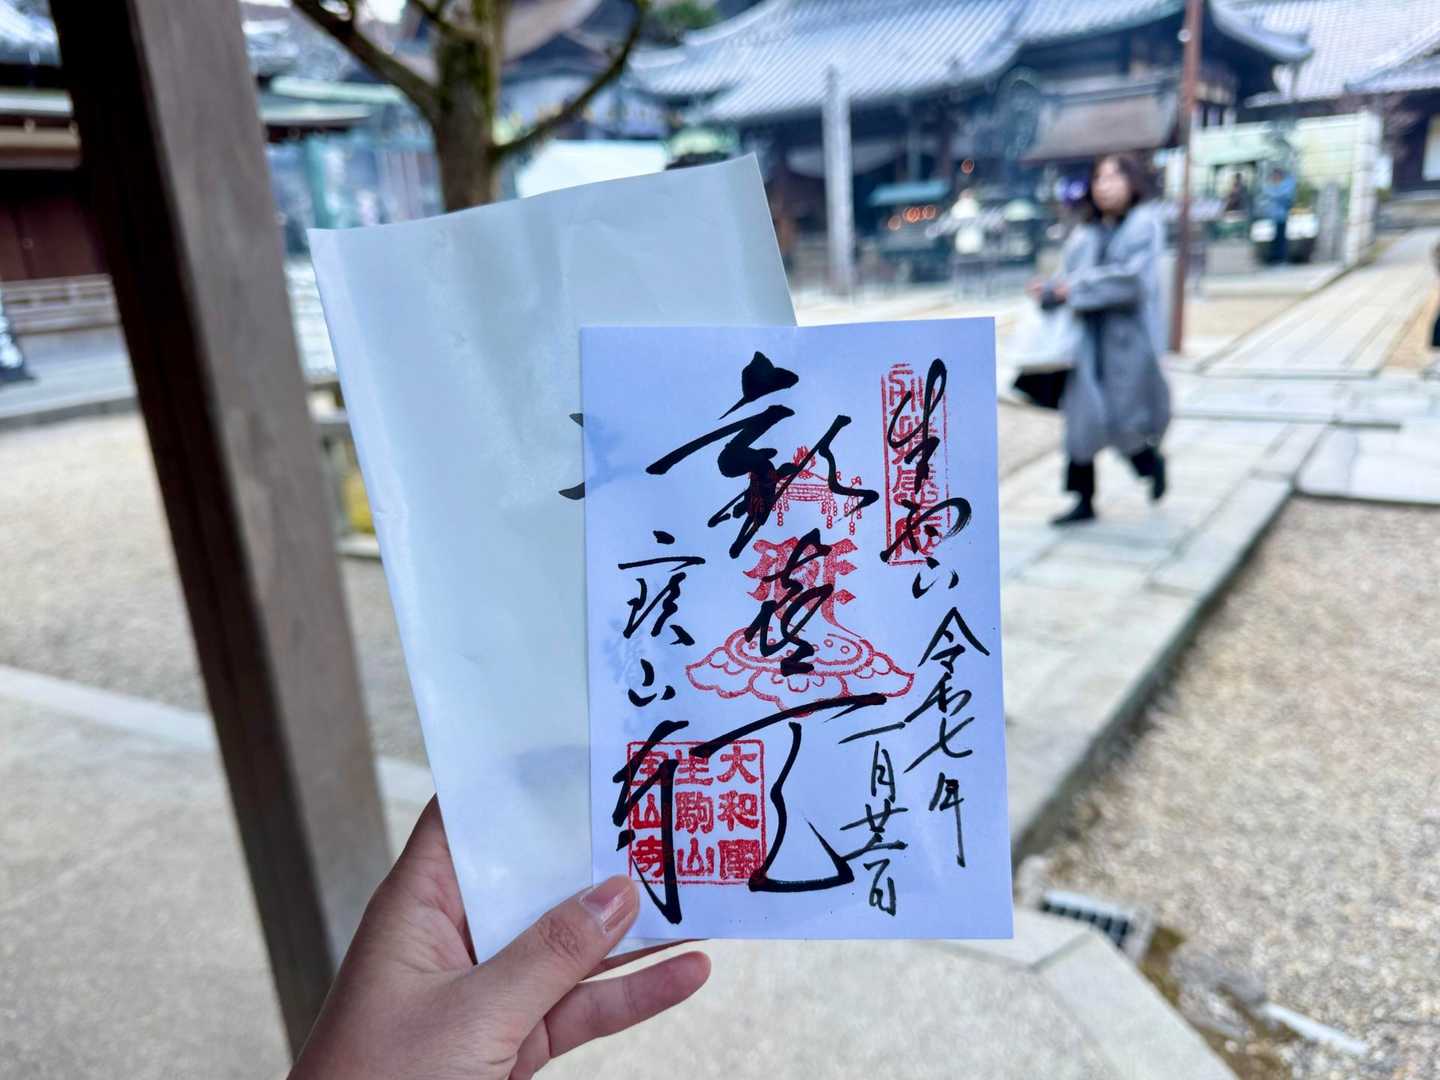 生駒山
令和七年
一月廿三日
歡喜天
寳山寺
大和國
生駒山
宝山寺